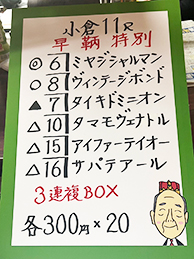 小倉11R
早鞆特別
◎ 6 ミヤジシャルマン
○ 8 ヴィンテージボンド
▲ 7 タイキドミニオン
△ 10 タマモヴェナトル
△ 15 アイファーテイオー
△ 16 サバテアール
3連複BOX
各300円×20